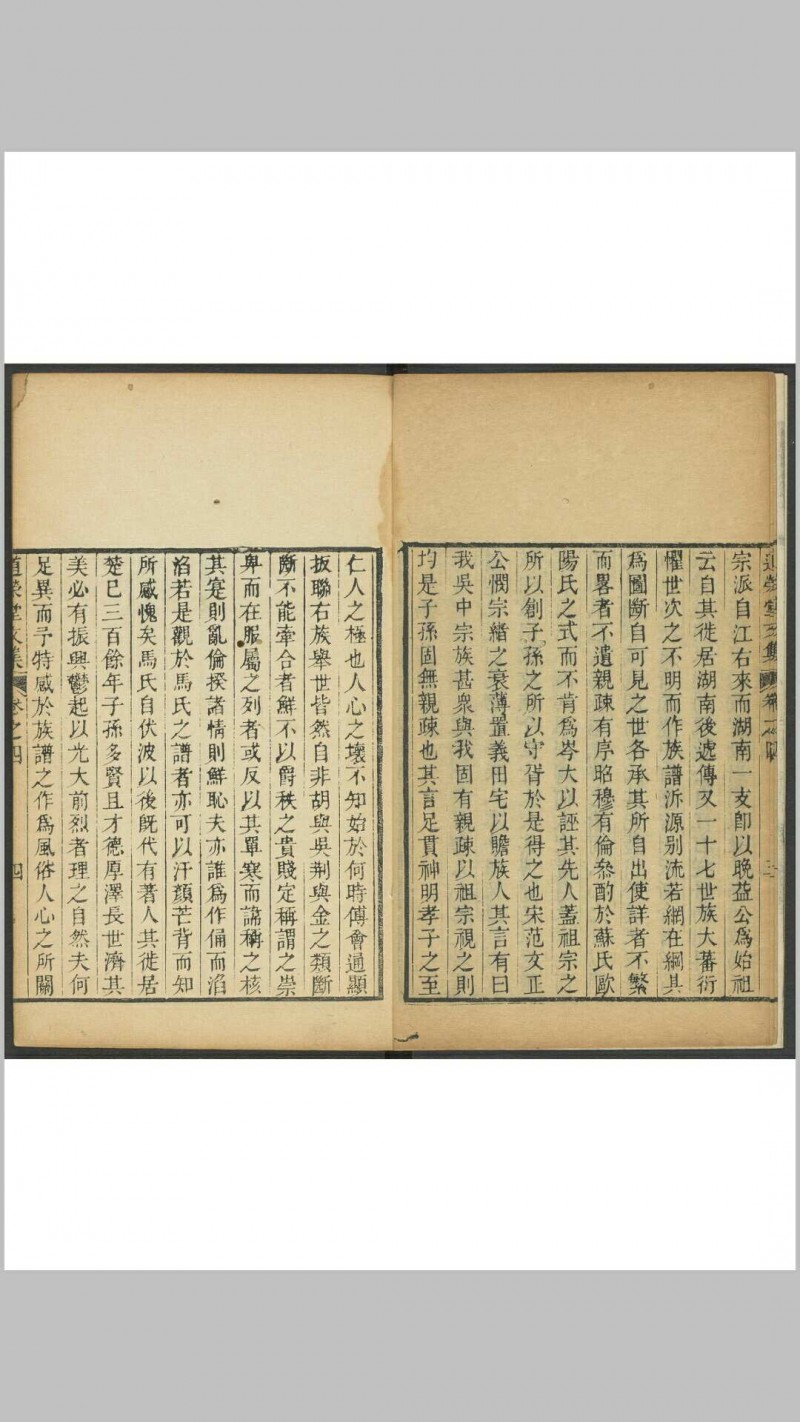 宗派自江右來而湖南一支卽以晚益公爲始祖
云自其徙居湖南後遞傳又一十七世族大蕃衍
懼世次之不明而作族譜泝源别流若網在綱具
爲圖斷自可見之世各承其所自出使詳者不繁
而畧者不遺親疎有序昭穆有倫叅酌於蘇氏歐
陽氏之式而不肯爲岑大以誣其先人蓋祖宗之
所以創子孫之所以守胥於是得之也宋范文正
公憫宗緒之衰薄置義田宅以贍族人其言有曰
我吳中宗族甚衆與我固有親疎以祖宗視之則
均是子孫固無親疎也其言足貫神明孝子之至
仁人之極也人心之壞不知始於何時傅會通顯
扳聯右族舉世皆然自非胡與吳荆與金之類斷
斷不能牽合者鮮不以爵秩之貴賤定稱謂之崇
卑而在服屬之列者或反以其單寒而諱稱之核
其寔則亂倫揆諸情則鮮恥夫亦誰爲作俑而滔
滔若是觀於馬氏之譜者亦可以汗顏芒背而知
所感愧矣馬氏自伏波以後旣代有著人其徙居
楚已三百餘年子孫多賢且才德厚澤長世濟其
美必有振興鬱起以光大前烈者理之自然夫何
足異而予特感於族譜之作爲風俗人心之所關
道榮堂文集 卷之四 四